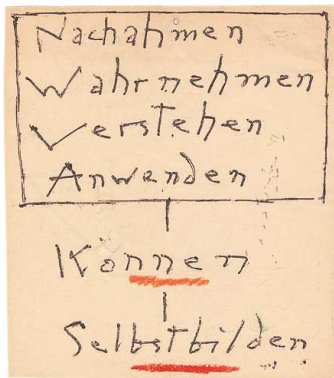 Nachahmen
Wahrnehmen
Verstehen
Anwenden
Können
Selbstbilden